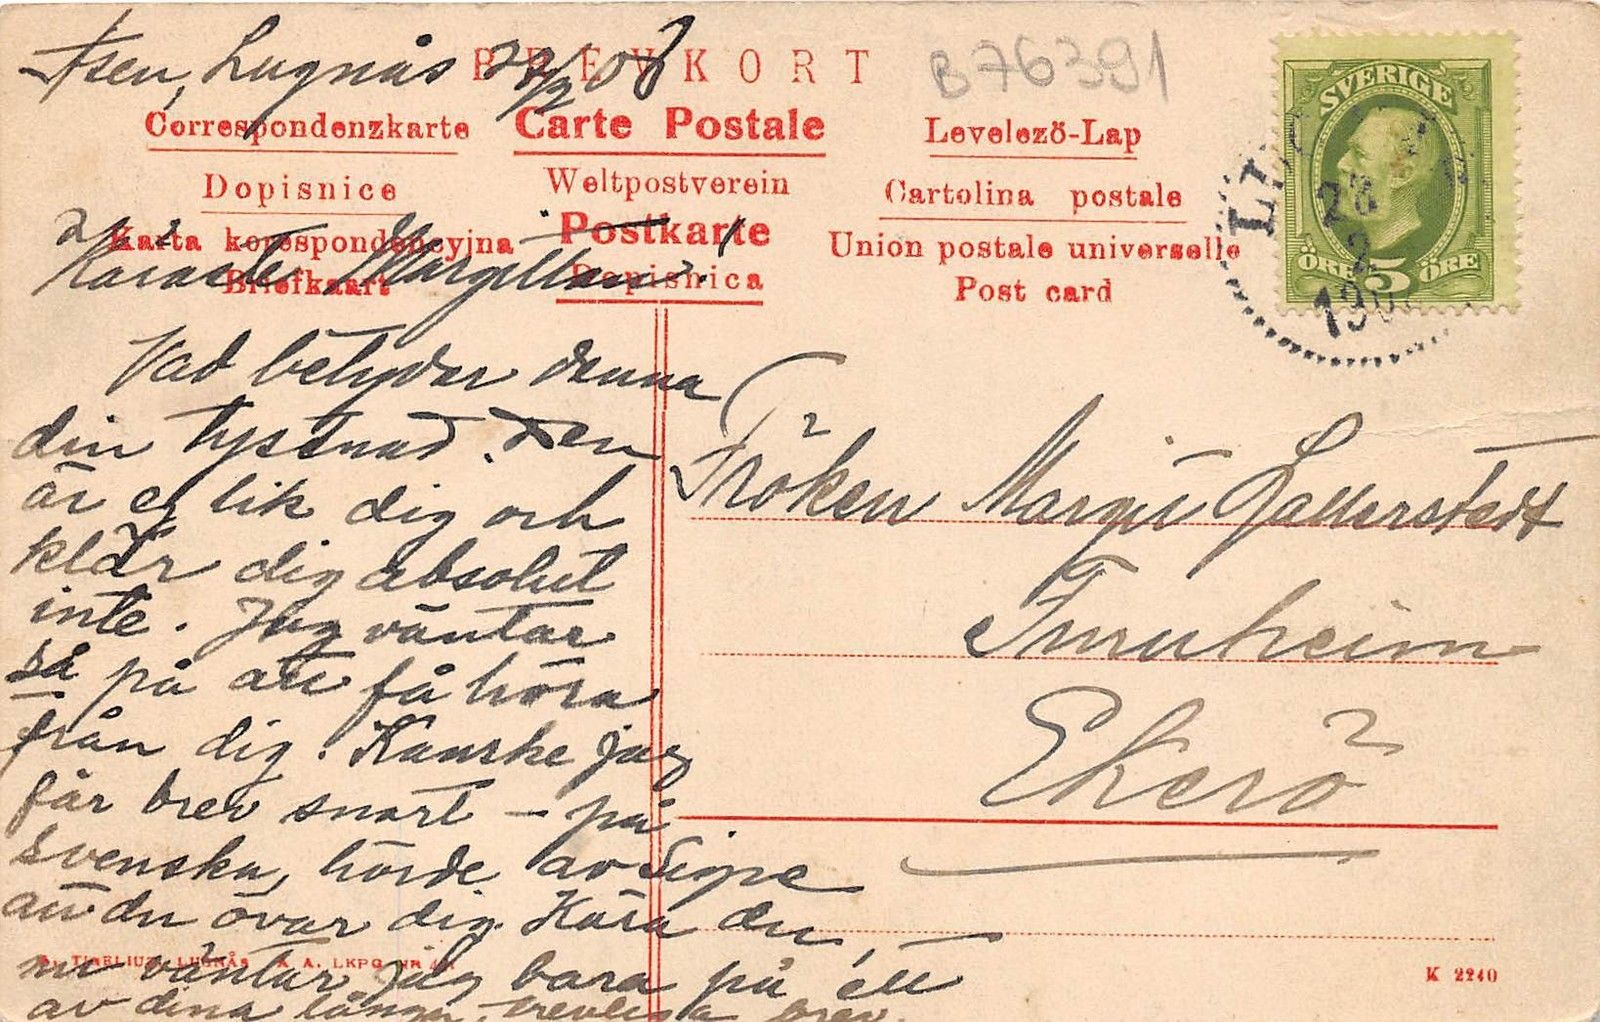 BREVKORT
B76391
Åsen, Lugnås 28/2 08
Correspondenzkarte
Carte Postale
Levelező-Lap
Dopisnice
Weltpostverein
Cartolina postale
Karta korespondencyjna
Postkarte
Union postale universelle
Briefkaart
Dopisnica
Post card
SVERIGE
ÖRE 5 ÖRE
28
2
Käraste Margit!
Vad betyder denna
din tystnad. Den
är ej lik dig och
klär dig absolut
inte. Jag väntar
så på att få höra
från dig. Kanske jag
får brev snart – på
svenska, hörde av Signe
att du övar dig. Kära du,
nu väntar jag bara på ett
av dina långa, trevliga brev.
Fröken Margit Zallerstedt
Furuheim
Ekerö
TIBELIUS, LUGNÅS A. A. LKPG NR
K 2240